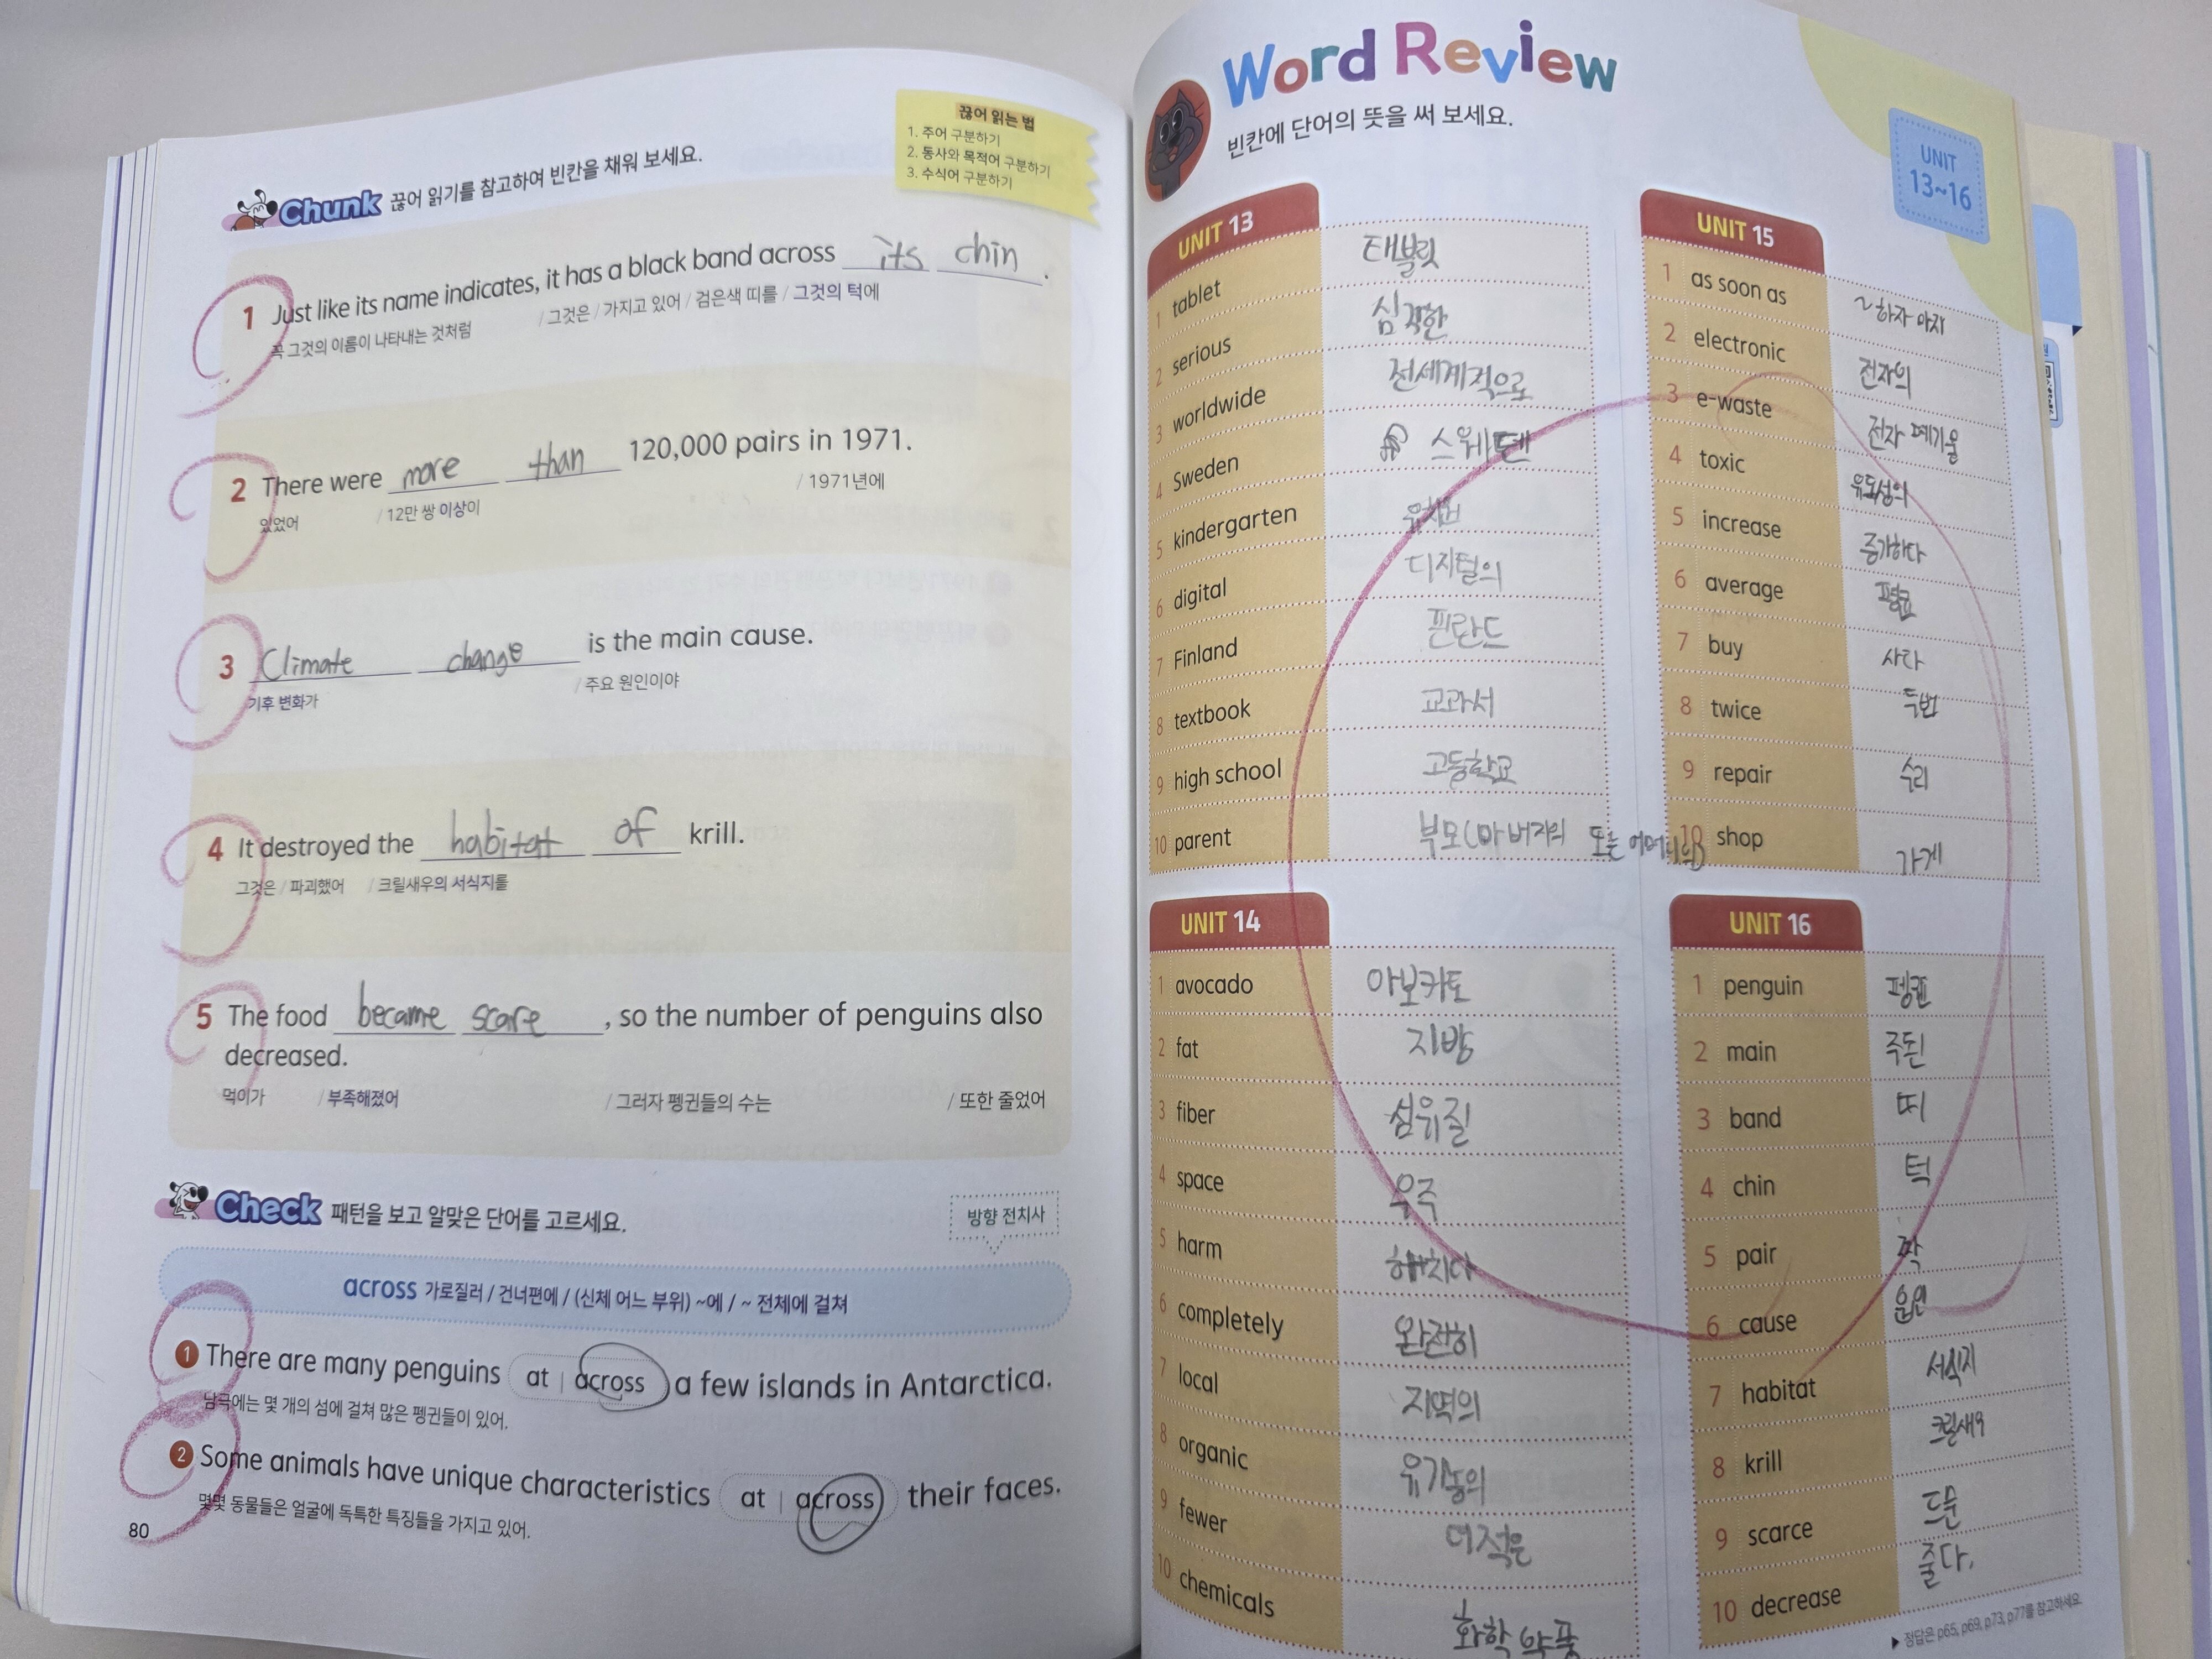 Chunk 끊어 읽기를 참고하여 빈칸을 채워 보세요.
끊어 읽는 법
1. 주어 구분하기
2. 동사와 목적어 구분하기
3. 수식어 구분하기
1 Just like its name indicates, it has a black band across its chin .
꼭 그것의 이름이 나타내는 것처럼 / 그것은 / 가지고 있어 / 검은색 띠를 / 그것의 턱에
2 There were more than 120,000 pairs in 1971.
있었어 / 12만 쌍 이상이 / 1971년에
3 Climate change is the main cause.
기후 변화가 / 주요 원인이야
4 It destroyed the habitat of krill.
그것은 / 파괴했어 / 크릴새우의 서식지를
5 The food became scare , so the number of penguins also
decreased.
먹이가 / 부족해졌어 / 그러자 펭귄들의 수는 / 또한 줄었어
Check 패턴을 보고 알맞은 단어를 고르세요.
방향 전치사
across 가로질러 / 건너편에 / (신체 어느 부위) ~에 / ~ 전체에 걸쳐
1 There are many penguins at | across a few islands in Antarctica.
남극에는 몇 개의 섬에 걸쳐 많은 펭귄들이 있어.
2 Some animals have unique characteristics at | across their faces.
몇몇 동물들은 얼굴에 독특한 특징들을 가지고 있어.
80
Word Review
빈칸에 단어의 뜻을 써 보세요.
UNIT
13~16
UNIT 13
1 tablet 태블릿
2 serious 심각한
3 worldwide 전세계적으로
4 Sweden 스웨덴
5 kindergarten 유치원
6 digital 디지털의
7 Finland 핀란드
8 textbook 교과서
9 high school 고등학교
10 parent 부모(아버지의 또는 어머니의)
UNIT 14
1 avocado 아보카도
2 fat 지방
3 fiber 섬유질
4 space 우주
5 harm 해치다
6 completely 완전히
7 local 지역의
8 organic 유기농의
9 fewer 더 적은
10 chemicals 화학 약품
UNIT 15
1 as soon as ~하자 마자
2 electronic 전자의
3 e-waste 전자 폐기물
4 toxic 유독성의
5 increase 증가하다
6 average 평균
7 buy 사다
8 twice 두번
9 repair 수리
10 shop 가게
UNIT 16
1 penguin 펭귄
2 main 주된
3 band 띠
4 chin 턱
5 pair 짝
6 cause 원인
7 habitat 서식지
8 krill 크릴새우
9 scarce 드문
10 decrease 줄다.
▶ 정답은 p65, p69, p73, p77를 참고하세요.